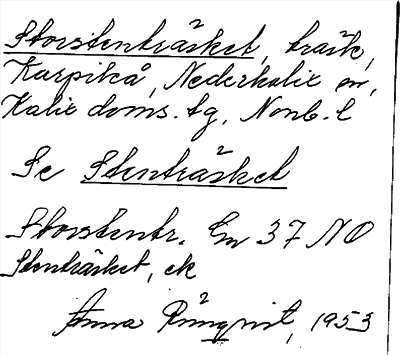 Storstenträsket, träsk,
Karpikå, Nederkalix sn,
Kalix doms. tg, Norrb. l
Se Stenträsket
Storstentr. Gn 37 NO
Stenträsket, ek
Anna Rönnqvist, 1953